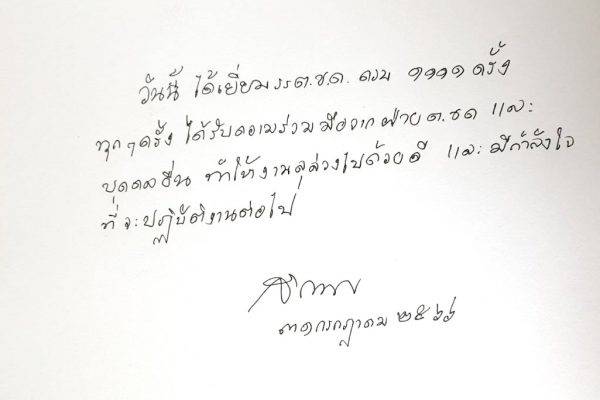 วันนี้ ได้เยี่ยม รร ต.ช.ด. ครบ ๑๑๑๑ ครั้ง
ทุกๆครั้ง ได้รับความร่วมมือจากฝ่าย ต.ช.ด และ
บุคคลอื่น ทำให้งานลุล่วงไปด้วยดี และ มีกำลังใจ
ที่จะปฏิบัติงานต่อไป
๓๑ กรกฎาคม ๒๕๖๖